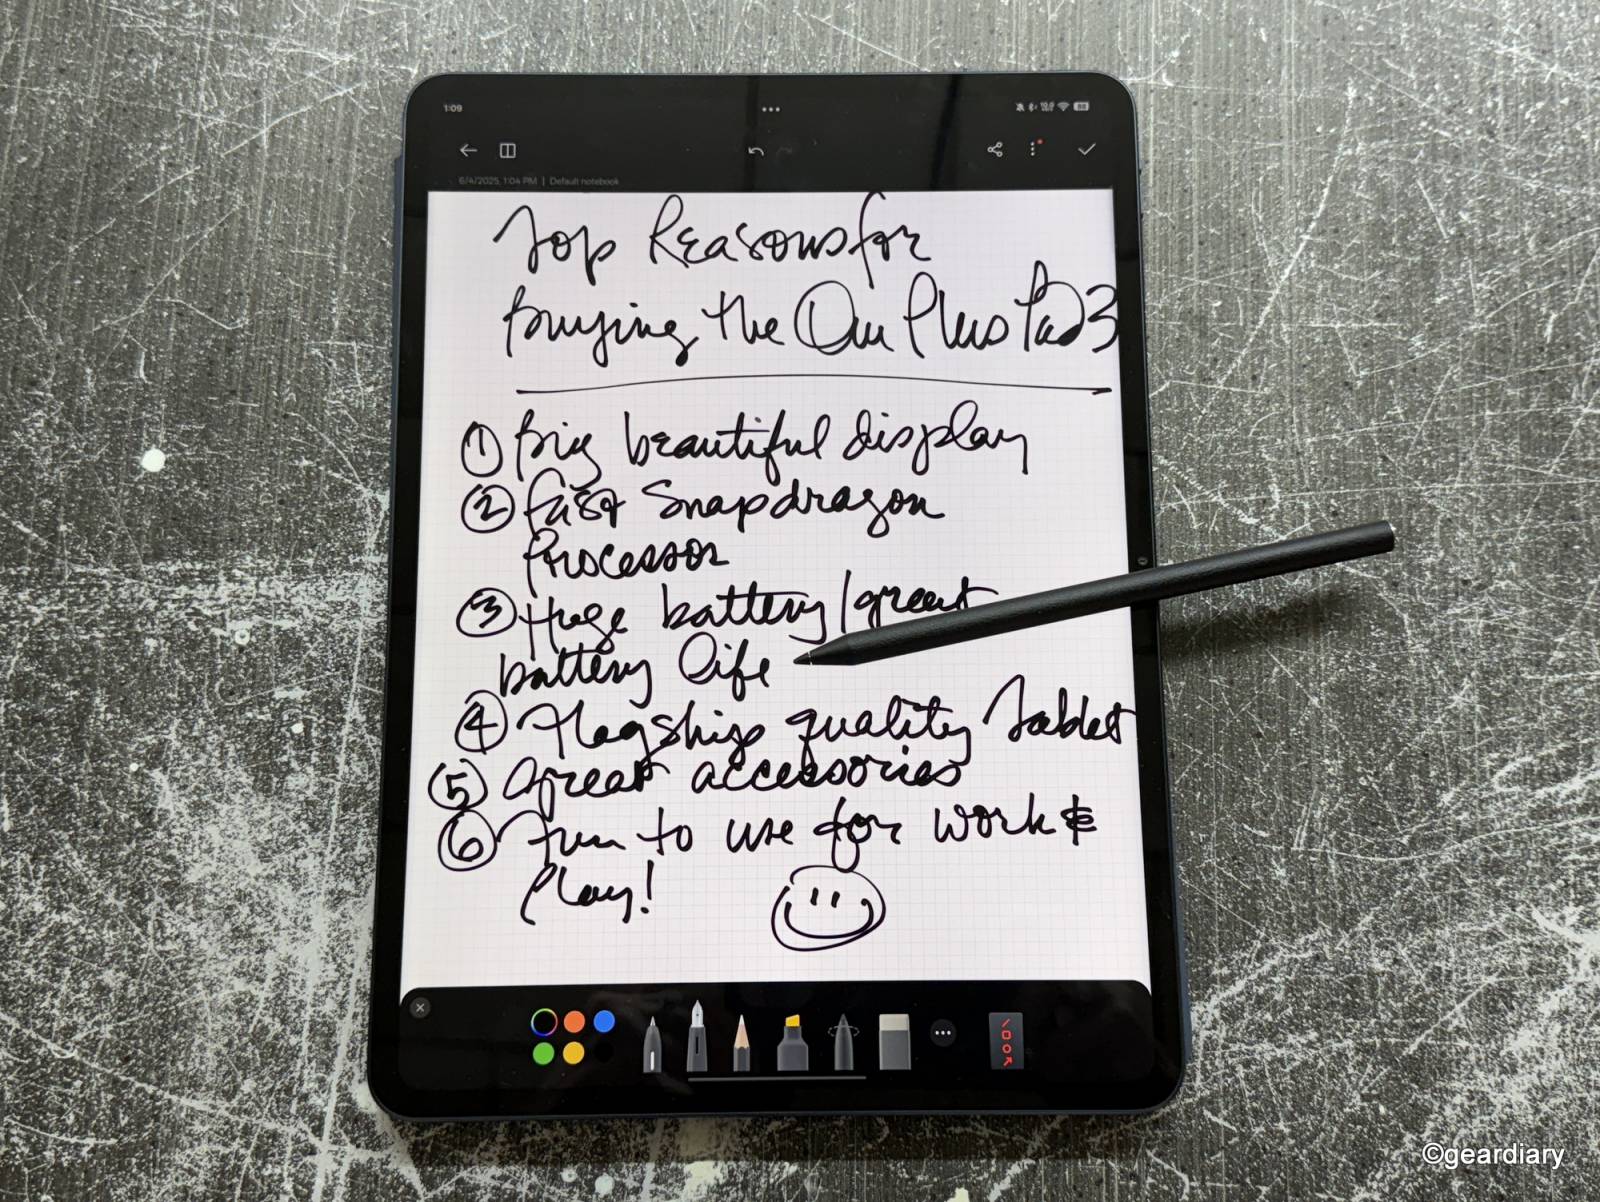 1:09
88
6/4/2025, 1:04 PM | Default notebook
Top Reasons for
Buying the OnePlus Pad 3
① Big beautiful display
② Fast Snapdragon
Processor
③ Huge battery/great
battery life
④ Flagship quality Tablet
⑤ Great accessories
⑥ Fun to use for work &
Play!
©geardiary